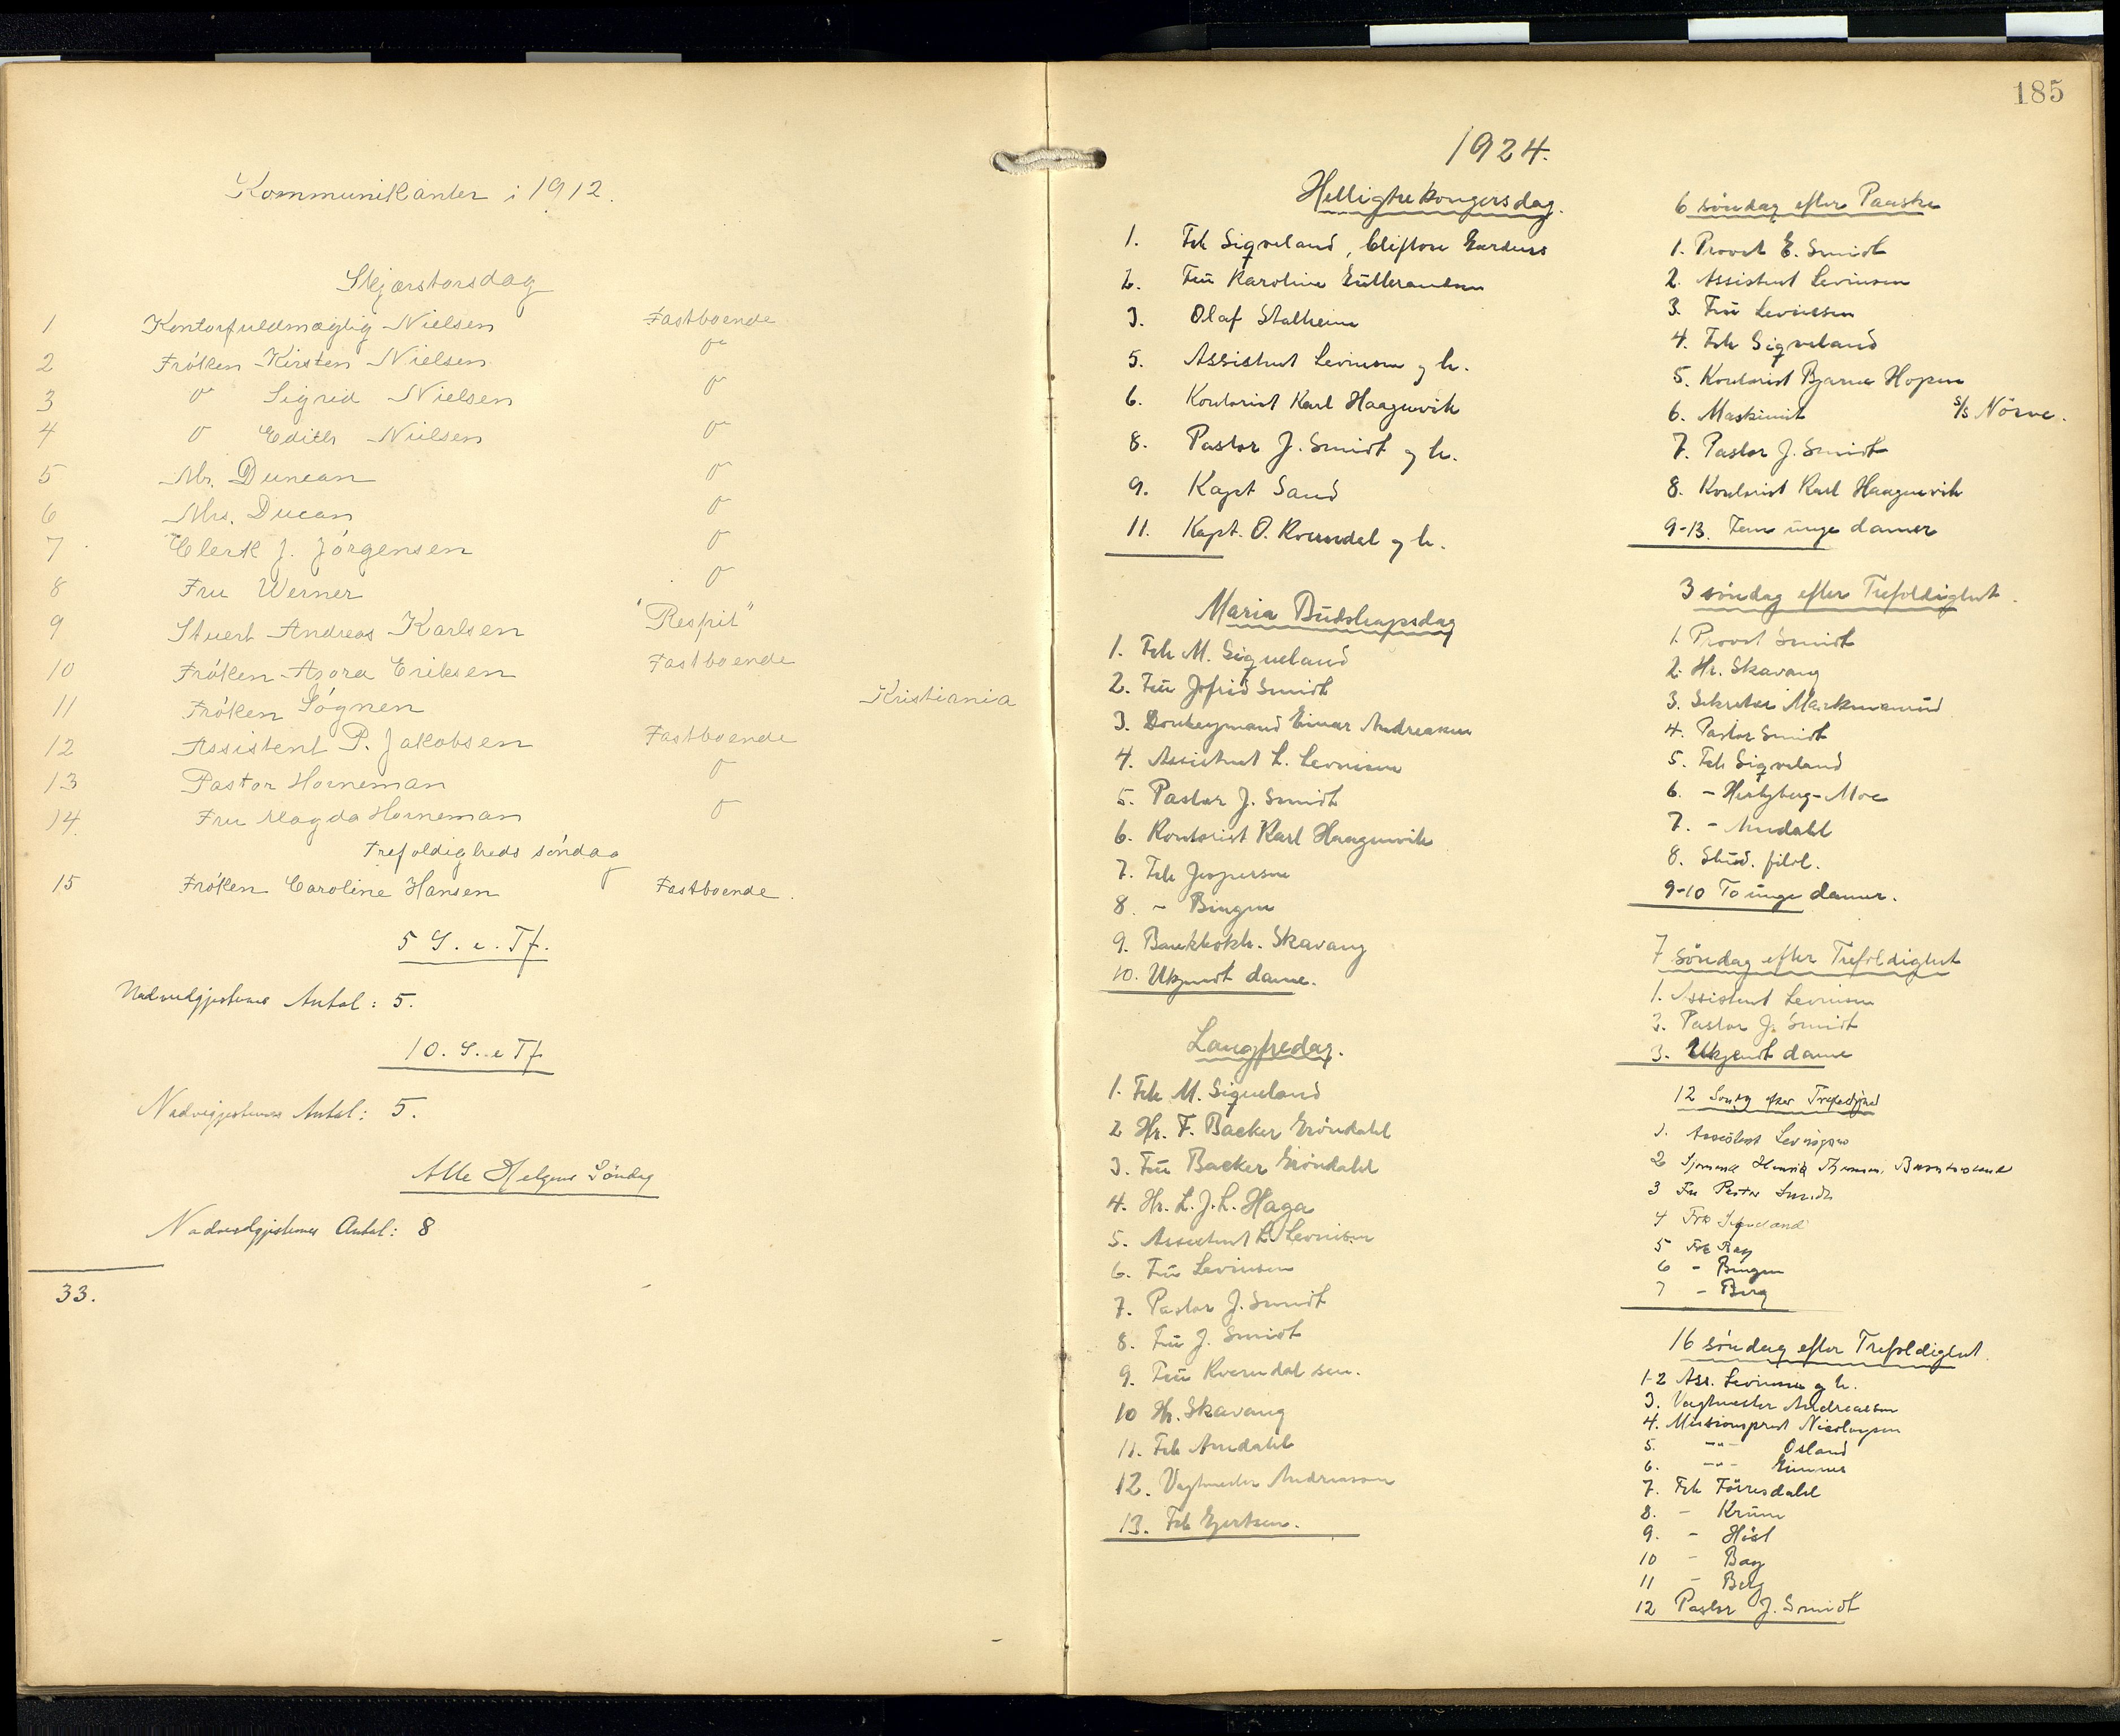 Kommunikanter i 1912.
Skjærstorsdag
1 Kontorfuldmægtig Nielsen Fastboende
2 Fröken Kirsten Nielsen o
3 o Sigrid Nielsen o
4 o Edith Nielsen o
5 Mr. Duncan o
6 Mrs. Ducan o
7 Clerk J. Jörgensen o
8 Fru Werner o
9 Stuert Andreas Karlsen "Respit"
10 Fröken Asora Eriksen Fastboende
11 Fröken Sögnen Kristiania
12 Assistent P. Jakobsen Fastboende
13 Pastor Horneman o
14. Fru Magda Horneman o
Trefoldigheds söndag
15 Fröken Caroline Hansen Fastboende.
5 S. e. Tf.
Antal: 5.
10. S. e Tf.
Antal: 5.
Alle Helgens Söndag
Antal: 8
33.
185
1924.
Helligtrekongersdag.
1. Frk Sigveland, Cliftone Gardens
2. Fru Karoline
3. Olaf Stalheim
5. Assistent Levinsen og h.
6. Kontorist Karl Haagenvik
8. Pastor J. Smidt og h.
9. Kapt Sand
11. Kapt. O. Kverndal og h.
Maria Budskapsdag
1. Frk M. Sigveland
2. Fru Jofrid Smidt
3. Donkeymand Einar Andreasen
4. Assistent L. Levinsen
5. Pastor J. Smidt
6. Kontorist Karl Haagenvik
7. Frk Jespersen
8. - Bingen
9. Bankbokh. Skavang
10. Ukjendt dame.
Langfredag.
1. Frk M. Sigveland
2 Hr. F. Backer Gröndahl
3. Fru Backer Gröndahl
4. Hr. L. J. L. Haga
5. Assistent L. Levinsen
6. Fru Levinsen
7. Pastor J. Smidt
8. Fru J. Smidt
9. Fru Kverndal sen.
10 Hr. Skavang
11. Frk Amdahl
12. Vagtmester Andreasen
13. Frk Gjertsen.
6 söndag efter Paaske
1. Provst E. Smidt
2. Assistent Levinsen
3. Fru Levinsen
4. Frk Sigveland
5. Kontorist Bjarne Hopen
6. Maskinist S/S Nörve.
7. Pastor J. Smidt
8. Kontorist Karl Haagenvik
9-13. Fem unge damer
3 söndag efter Trefoldighet.
1. Provst Smidt
2. Hr. Skavang
3. Sekretær Markmanrud
4. Pastor Smidt
5. Frk Sigveland
6. - Hertzberg-Moe
7. - Amdahl
8. Stud. filol.
9-10 To unge damer.
7 söndag efter Trefoldighet
1. Assistent Levinsen
2. Pastor J. Smidt
3. Ukjendt dame
12 Söndg efter
1. Assistent Levinsen
2
3 Fru Pastor Smidt
4 Frk Sigveland
5 Frk Bay
6 - Bingen
7 - Berg
16 söndag efter Trefoldighet.
1-2 Ass. Levinsen og h.
3. Vagtmester Andreassen
4. Missionsprest Nicolaysen
5. -"- Osland
6. -"-
7. Frk Förresdahl
8. - Krum
9. - Höst
10 - Bay
11 - Berg
12 Pastor J. Smidt